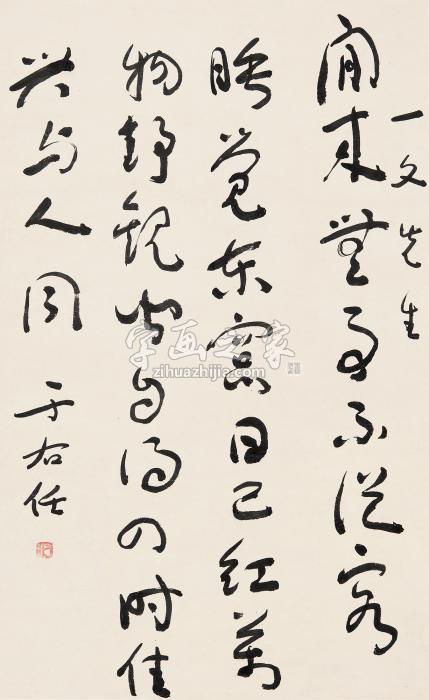 一文先生
閒來無事不從容
睡覺東窗日已紅萬
物靜觀皆自得四时佳
兴与人同
于右任
字画之家
zihuazhijia.com